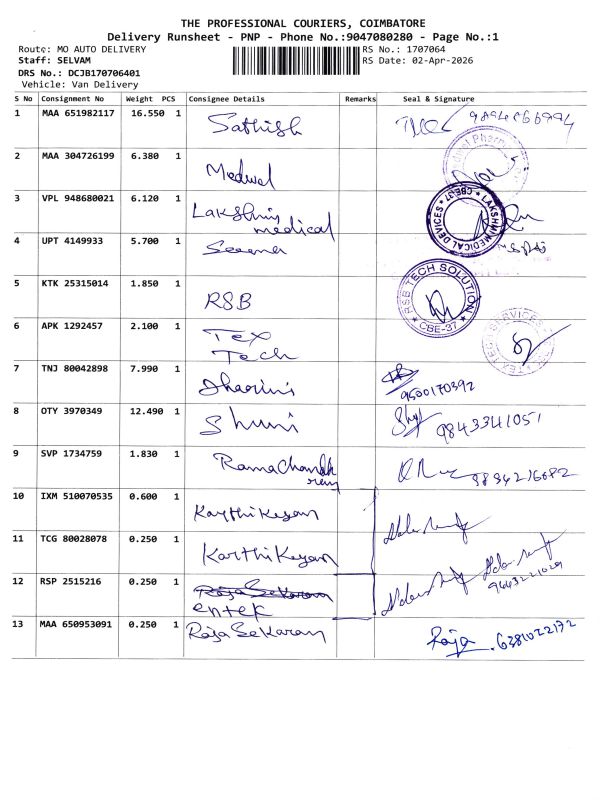 THE PROFESSIONAL COURIERS, COIMBATORE
Delivery Runsheet - PNP - Phone No.:9047080280 - Page No.:1
Route: MO AUTO DELIVERY
RS No.: 1707064
Staff: SELVAM
RS Date: 02-Apr-2026
DRS No.: DCJB170706401
Vehicle: Van Delivery
S No Consignment No Weight PCS Consignee Details Remarks Seal & Signature
1 MAA 651982117 16.550 1 Sathish
2 MAA 304726199 6.380 1 Medwel
3 VPL 948680021 6.120 1 Lakshmi medical
LAKSHMI MEDICAL DEVICES * CBE-37 *
4 UPT 4149933 5.700 1
5 KTK 25315014 1.850 1 RSB
RSB TECH SOLUTION * CBE-37 *
6 APK 1292457 2.100 1 Tex Tech
7 TNJ 80042898 7.990 1 Dhaarini 9500170392
8 OTY 3970349 12.490 1 9843341051
9 SVP 1734759 1.830 1 RamaChandran 9894216682
10 IXM 510070535 0.600 1 Karthikeyan
11 TCG 80028078 0.250 1 Karthikeyan
12 RSP 2515216 0.250 1 RajaSekaran
entek
13 MAA 650953091 0.250 1 RajaSekaran Raja 6381022172